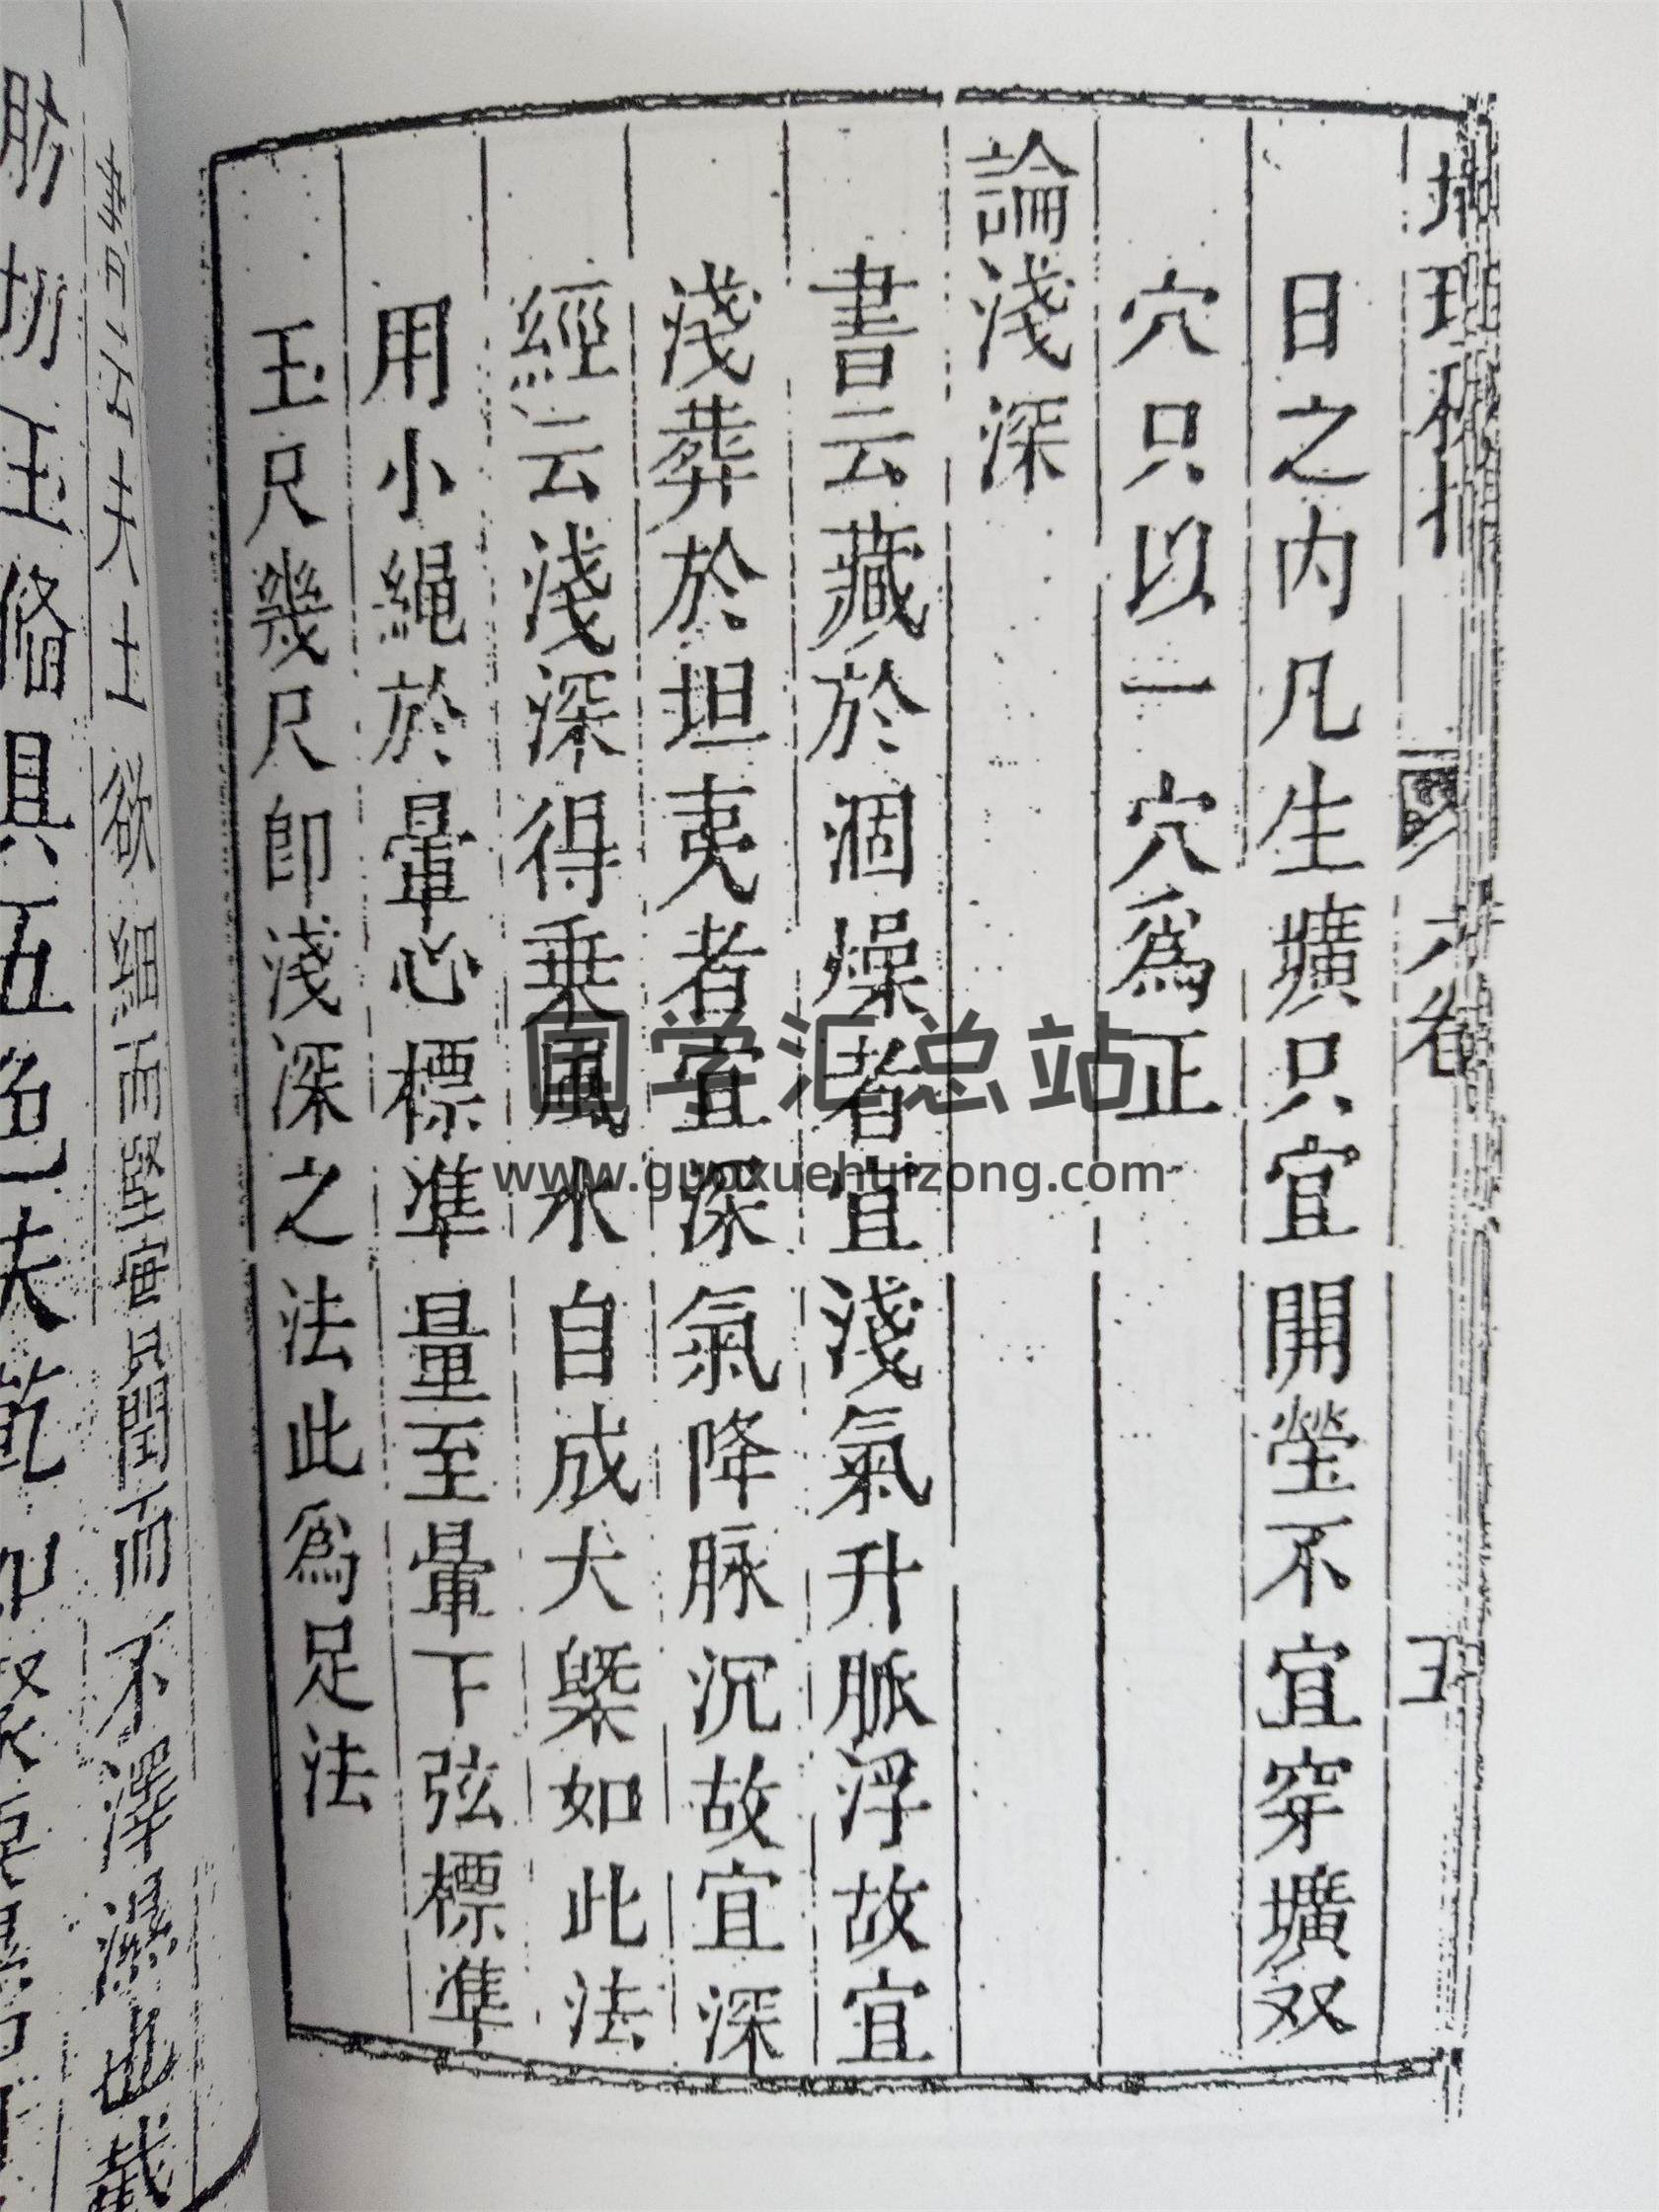 日之内凡生壙只宜開塋不宜穿壙双
穴只以一穴爲正
論淺深
書云藏於涸燥者宜淺氣升脈浮故宜
淺葬於坦夷者宜深氣降脉沉故宜深
經云淺深得乗風水自成大槩如此法
用小繩於暈心標準量至暈下弦標準
玉尺幾尺即淺深之法此爲足法
欲細而堅實只閏而不澤
切玉脩具五色夫
国学汇总站
www.guoxuehuizong.com